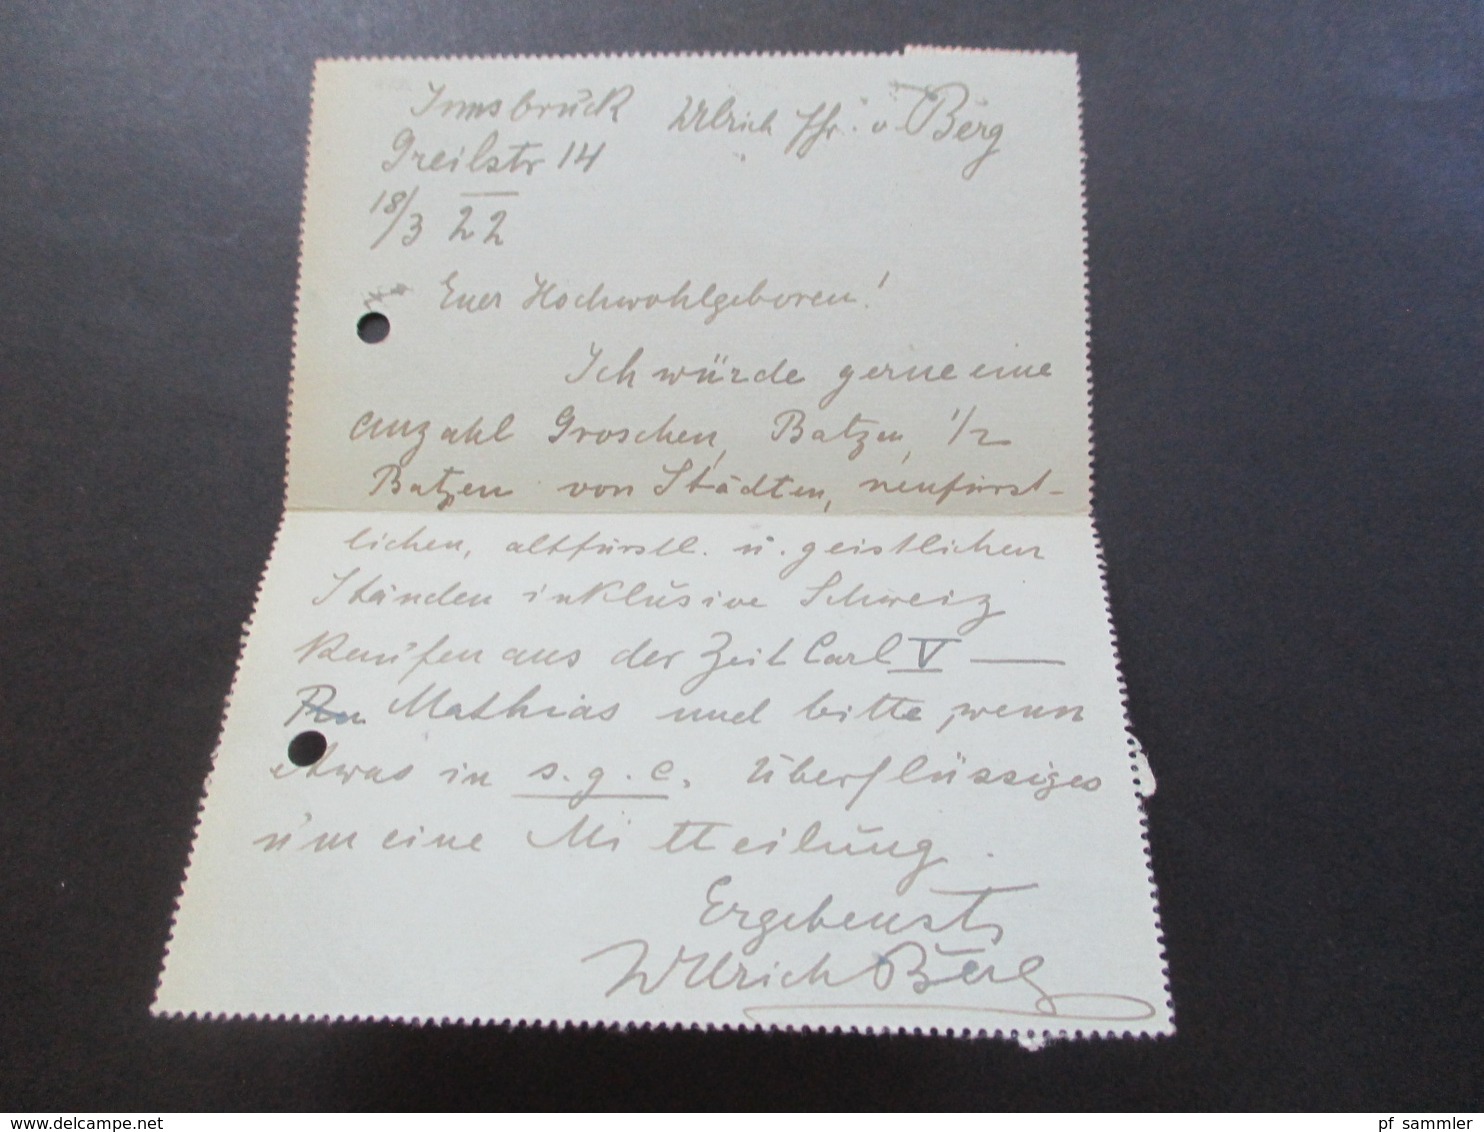 Innsbruck Ulrich Fhr. v Berg
Greilstr 14
18/3 22
Euer Hochwohlgeboren!
Ich würde gerne eine
Anzahl Groschen, Batzen, 1/2
Batzen von Städten, neufürst-
lichen, altfürstl. u. geistlichen
Ständen inklusive Schweiz
kaufen aus der Zeit Carl V —
Mathias und bitte, wenn
etwas in s. g. e. überflüssiges
um eine Mitteilung.
Ergebenst
Ullrich Berg
pf_sammler